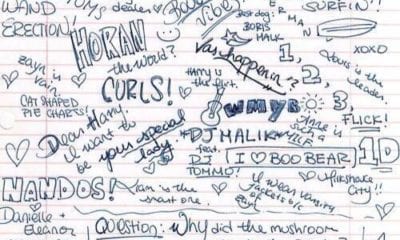 WAND
ERECTION!
Boo
Vibes
Best dog:
BORIS
MALK
SURFIN!!
HORAN
the world?
CURLS!
Vas happenin?
1,
2,
3,
FLICK!
XOXO
Louis is the leader.
Zayn is vain.
CAT SHAPED
PIE CHARTS!
Harry is
the flirt.
WMYB
Anne is
such a
MILF
Dear Harry,
I want to
be your special
lady
DJ MALIK
feat.
DJ
TOMMO!
I ♡ BOO BEAR
1D
Milkshake
City!!
NANDOS!
Liam is the
smart one.
I wear varsity
jackets b/c
Danielle +
Eleanor
Question: Why did the mushroom